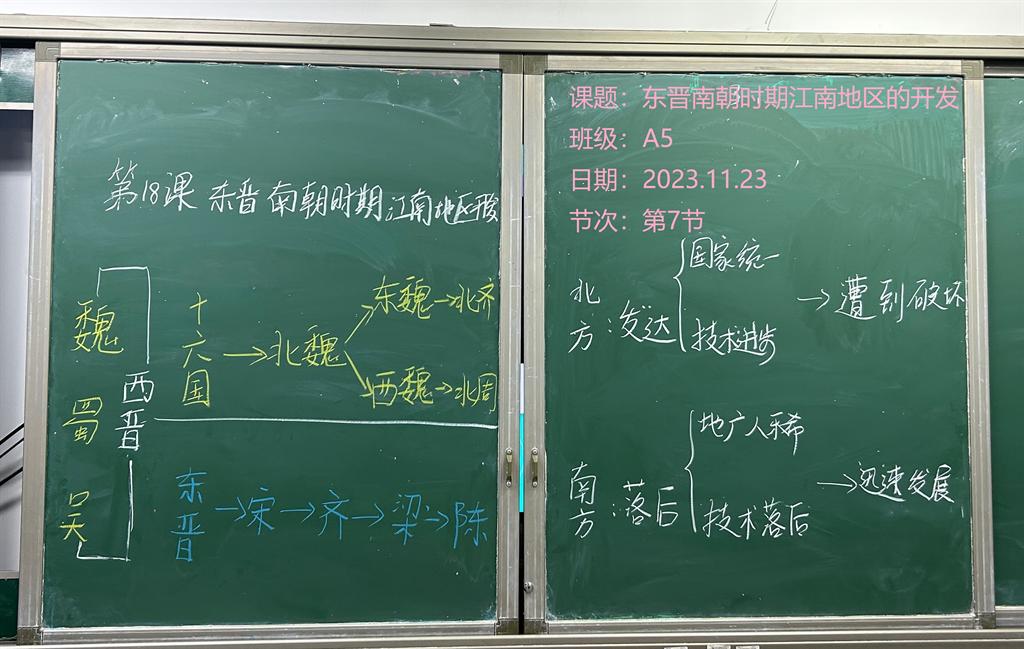 第18课 东晋南朝时期江南地区开发
魏
蜀
吴
西晋
十六国→北魏
东魏→北齐
西魏→北周
东晋→宋→齐→梁→陈
课题：东晋南朝时期江南地区的开发
班级：A5
日期：2023.11.23
节次：第7节
北方：发达
国家统一
技术进步
→遭到破坏
南方：落后
地广人稀
技术落后
→迅速发展